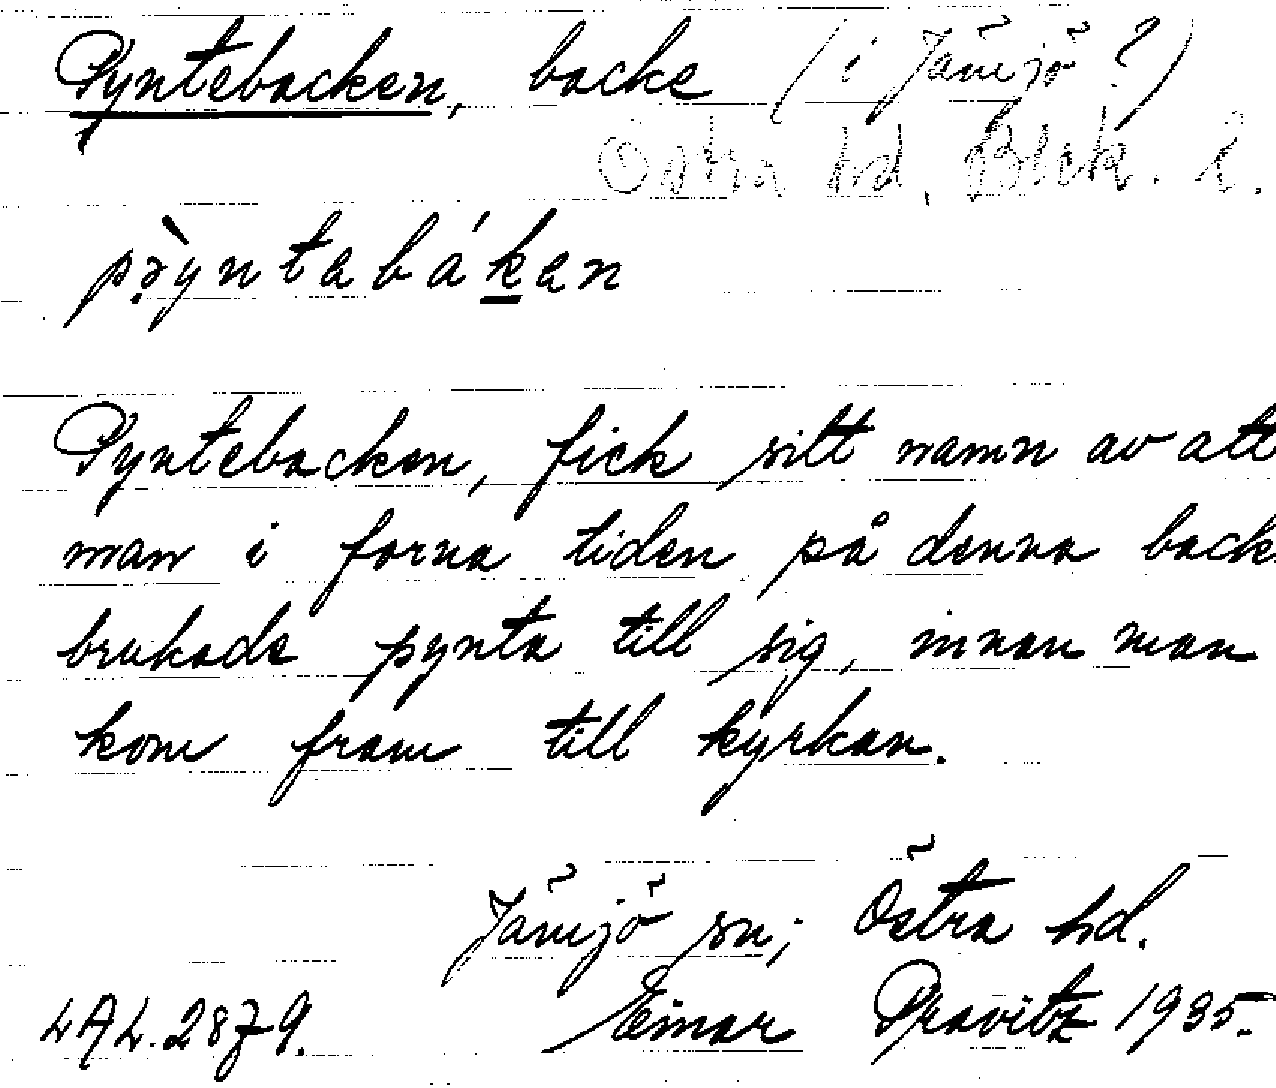 Pyntebacken, backe (i Jämjö?)
Östra hd, Blek. l.
Pyntebacken, fick sitt namn av att
man i forna tiden på denna back
brukade pynta till sig, innan man
kom fram till kyrkan.
Jämjö sn; Östra hd.
LAL.2879. Einar Pravitz 1935.